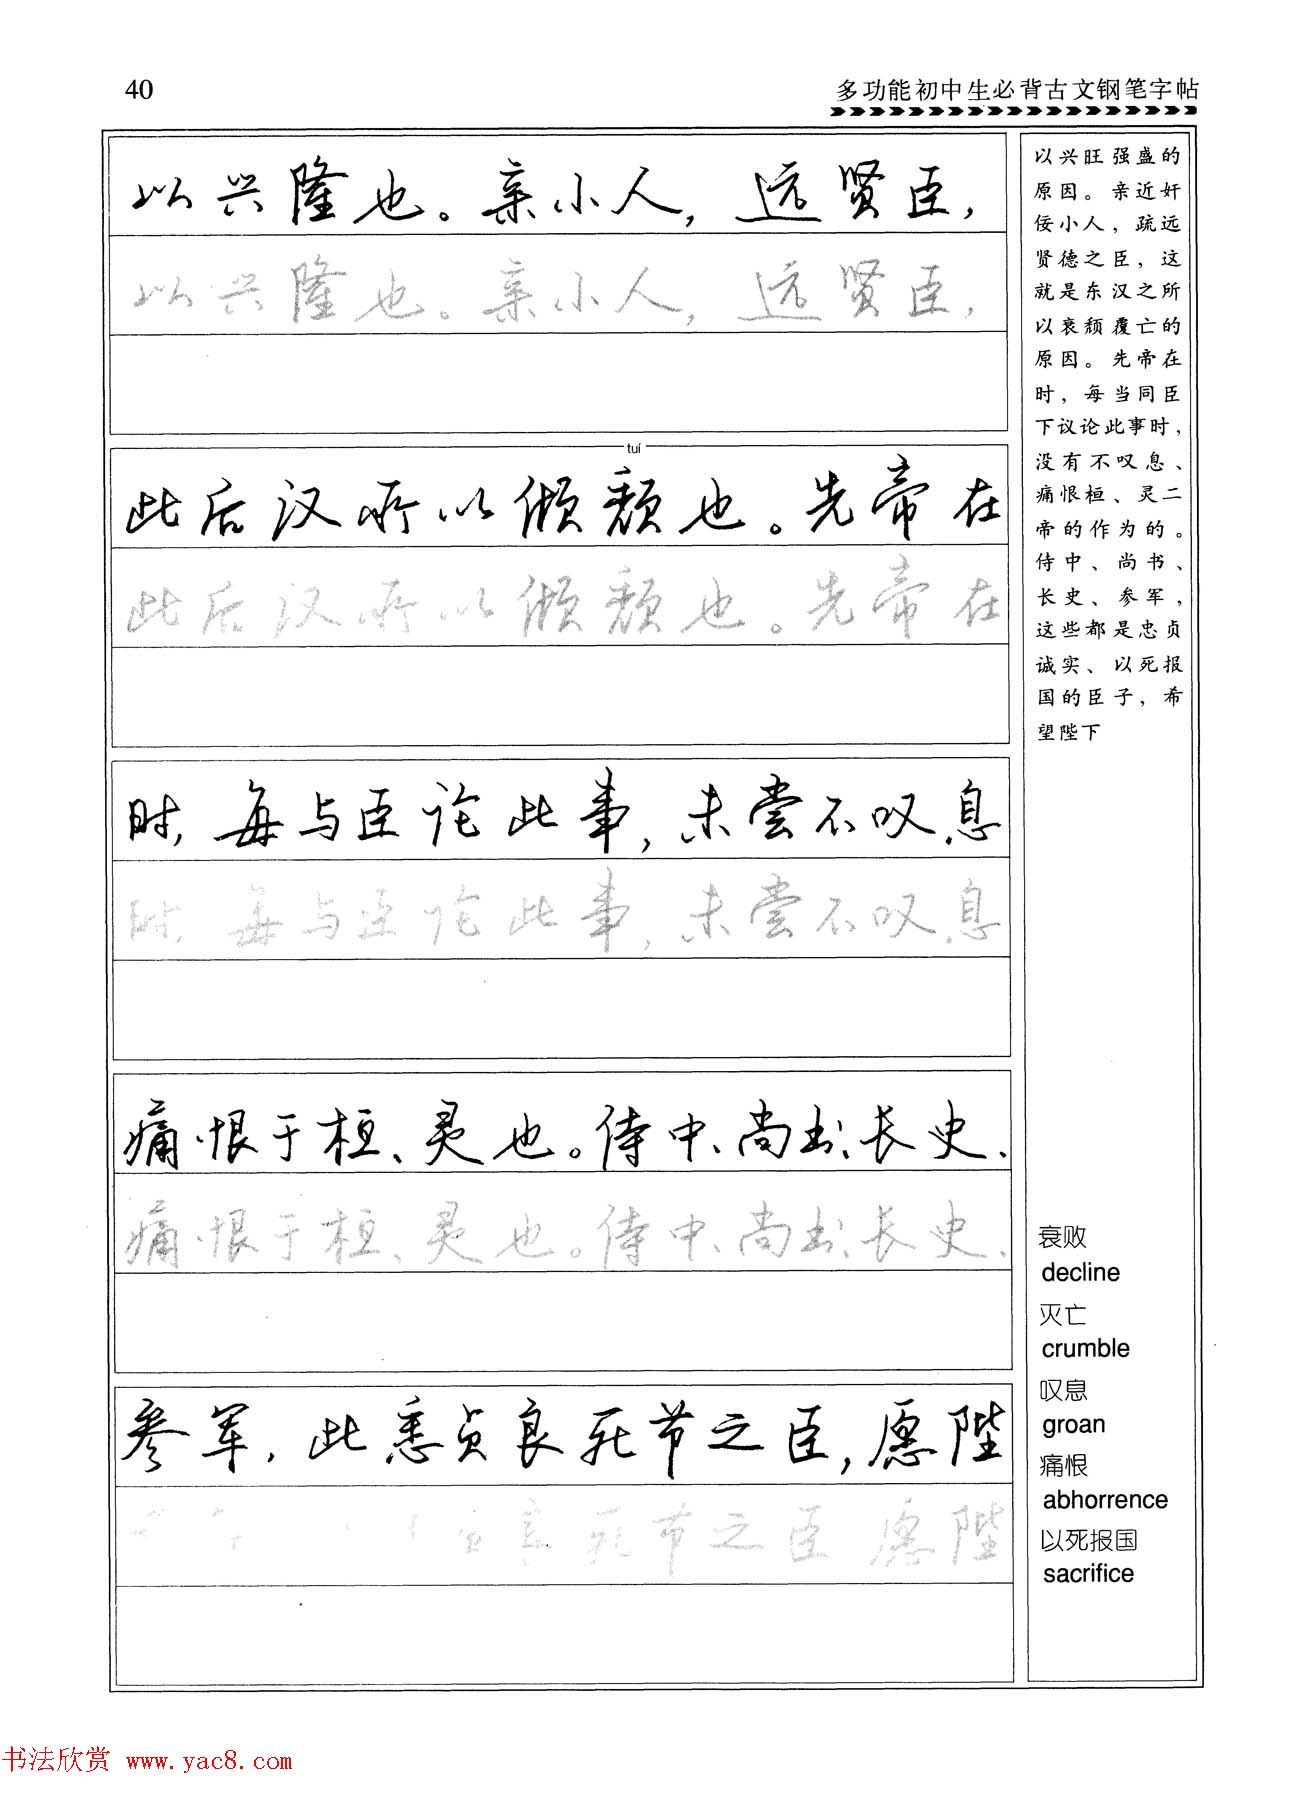 40
多功能初中生必背古文钢笔字帖
以兴隆也。亲小人，远贤臣，
以兴隆也。亲小人，远贤臣，
tuí
此后汉所以倾颓也。先帝在
此后汉所以倾颓也。先帝在
时，每与臣论此事，未尝不叹息
时，每与臣论此事，未尝不叹息
痛恨于桓、灵也。侍中、尚书、长史、
痛恨于桓、灵也。侍中、尚书、长史、
参军，此悉贞良死节之臣，愿陛
良死节之臣 愿陛
以兴旺强盛的
原因。亲近奸
佞小人，疏远
贤德之臣，这
就是东汉之所
以衰颓覆亡的
原因。先帝在
时，每当同臣
下议论此事时，
没有不叹息、
痛恨桓、灵二
帝的作为的。
侍中、尚书、
长史、参军，
这些都是忠贞
诚实、以死报
国的臣子，希
望陛下
衰败
decline
灭亡
crumble
叹息
groan
痛恨
abhorrence
以死报国
sacrifice
书法欣赏 www.yac8.com